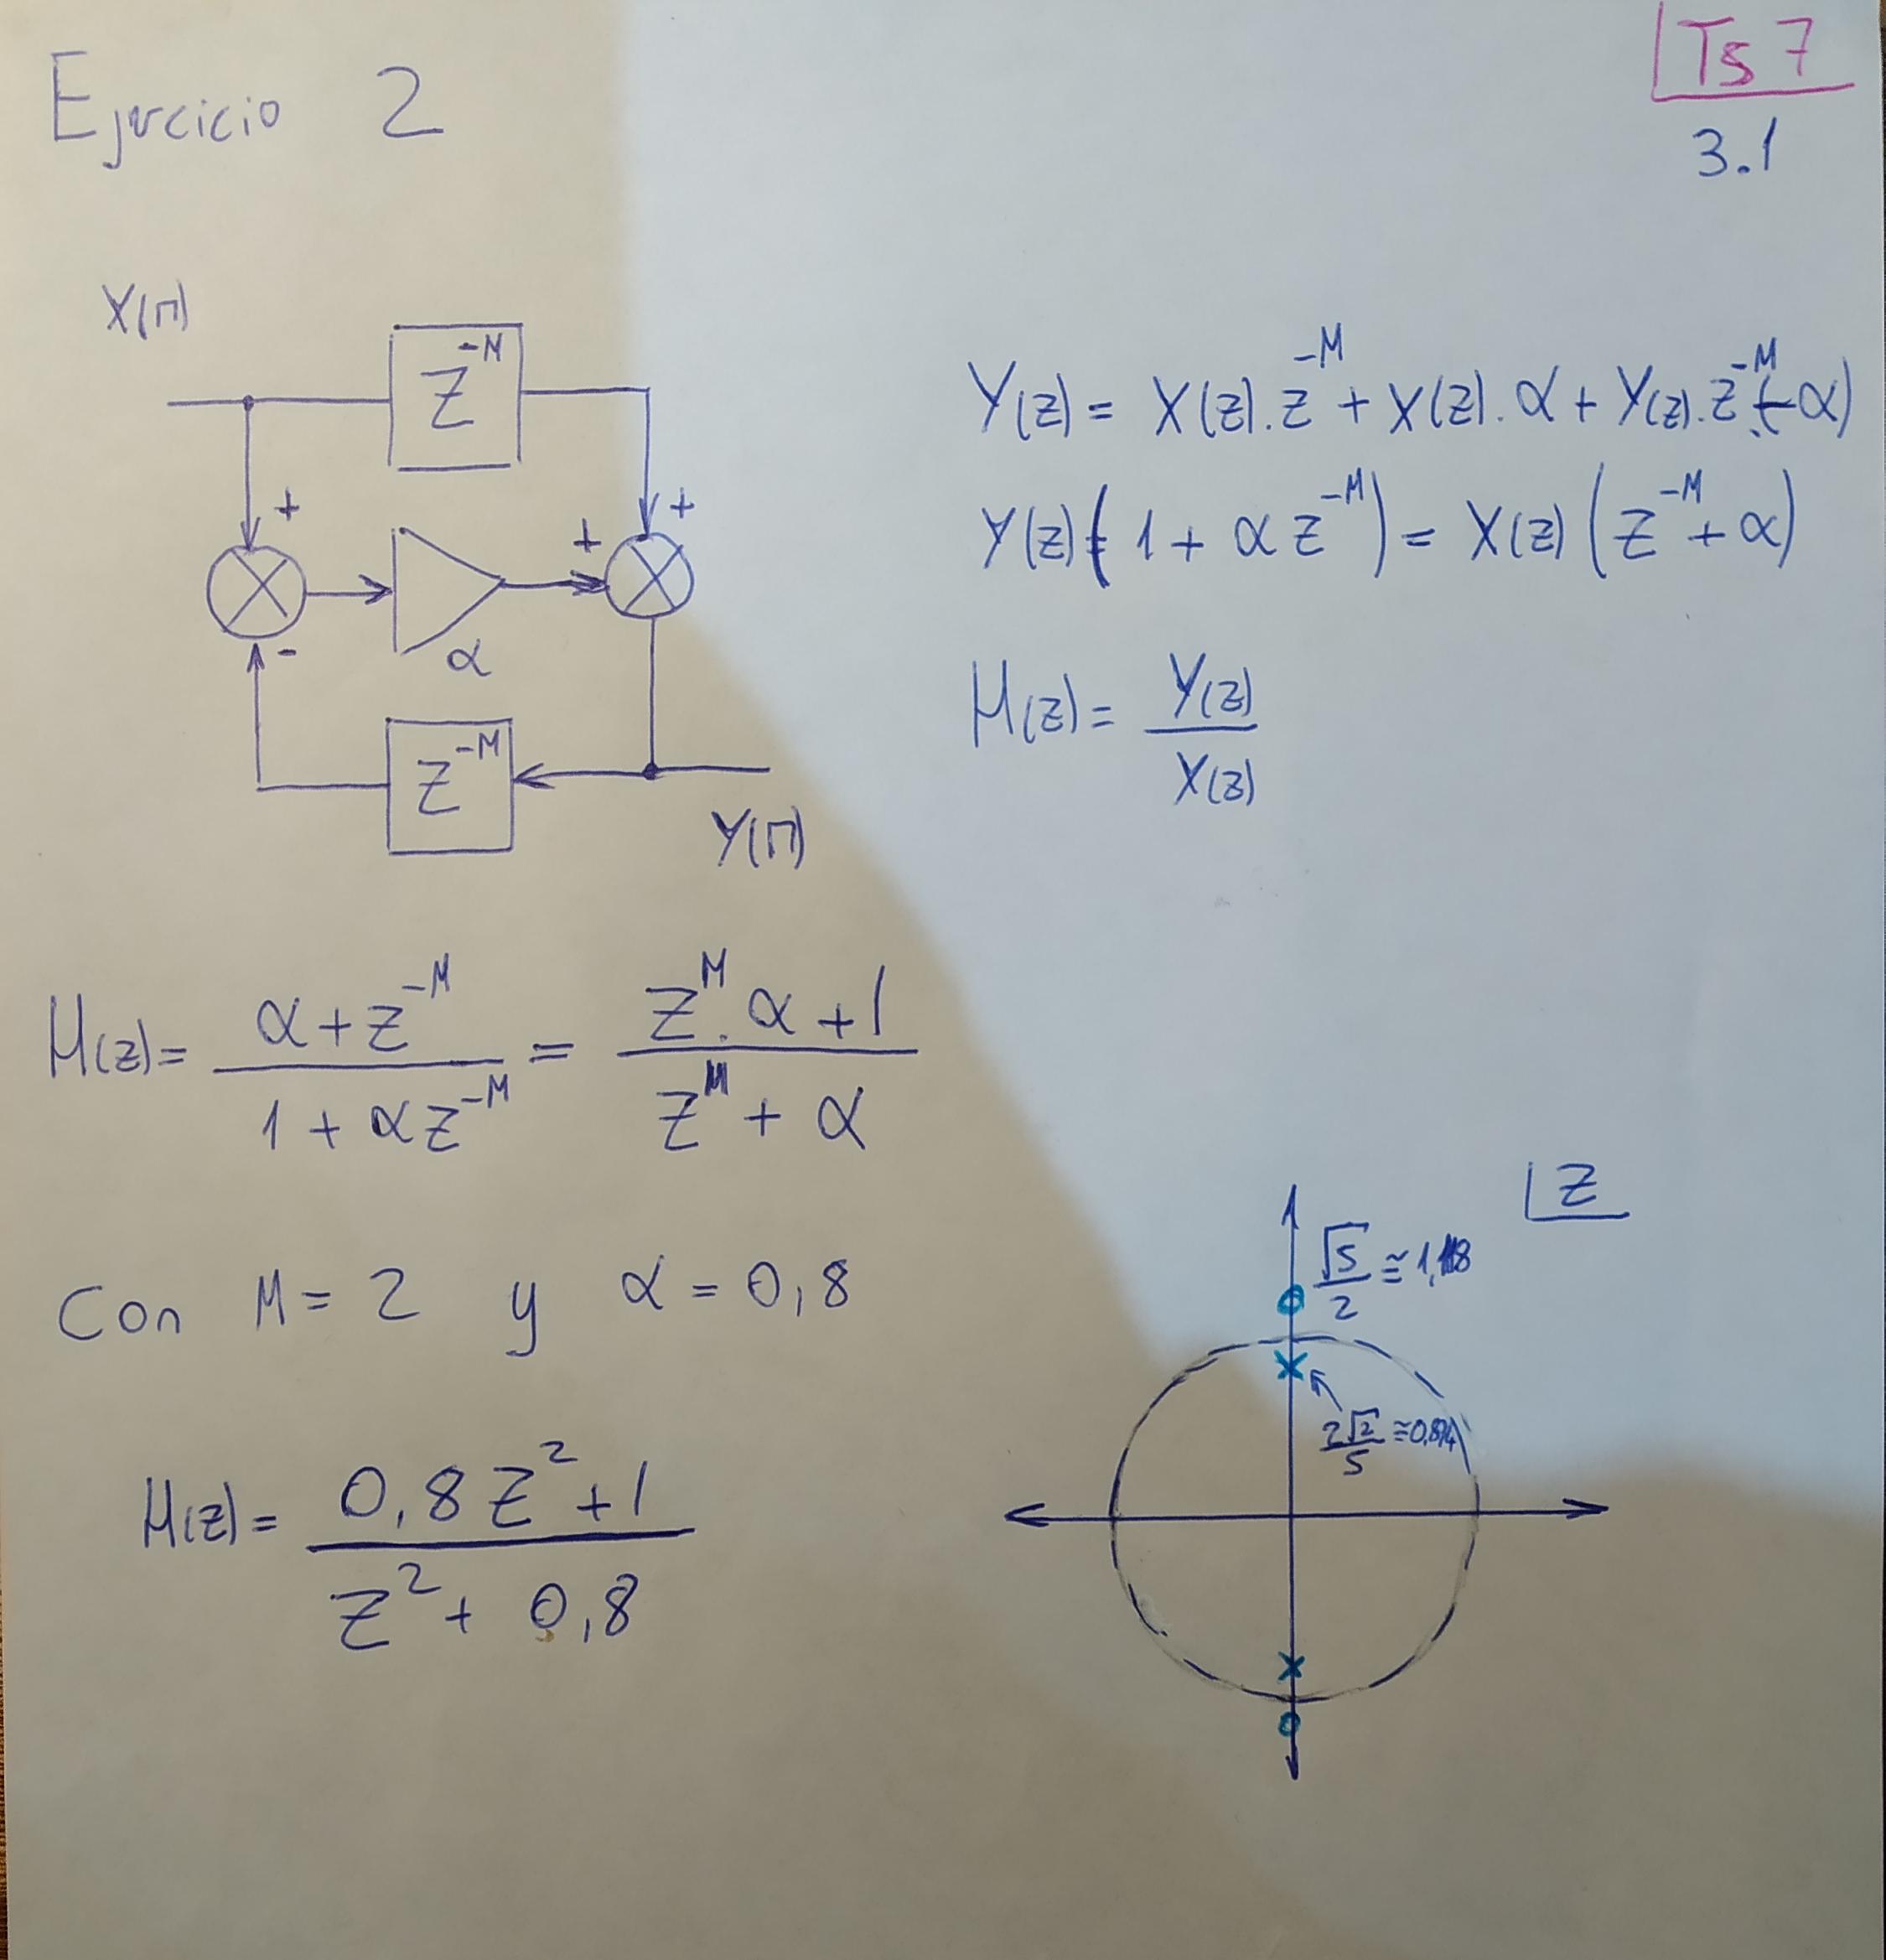 Ejercicio 2
Ts 7
3.1
X(n)
z^-M
+
+
+
-
α
z^-M
Y(n)
Y(z) = X(z).z^-M + X(z).α + Y(z).z^-M.(-α)
Y(z)(1 + αz^-M) = X(z)(z^-M + α)
H(z) = Y(z)/X(z)
H(z) = (α + z^-M)/(1 + αz^-M) = (z^M.α + 1)/(z^M + α)
Con M = 2 y α = 0,8
H(z) = (0,8z^2 + 1)/(z^2 + 0,8)
z
√5/2 ≅ 1,118
2√2/5 ≅ 0,894